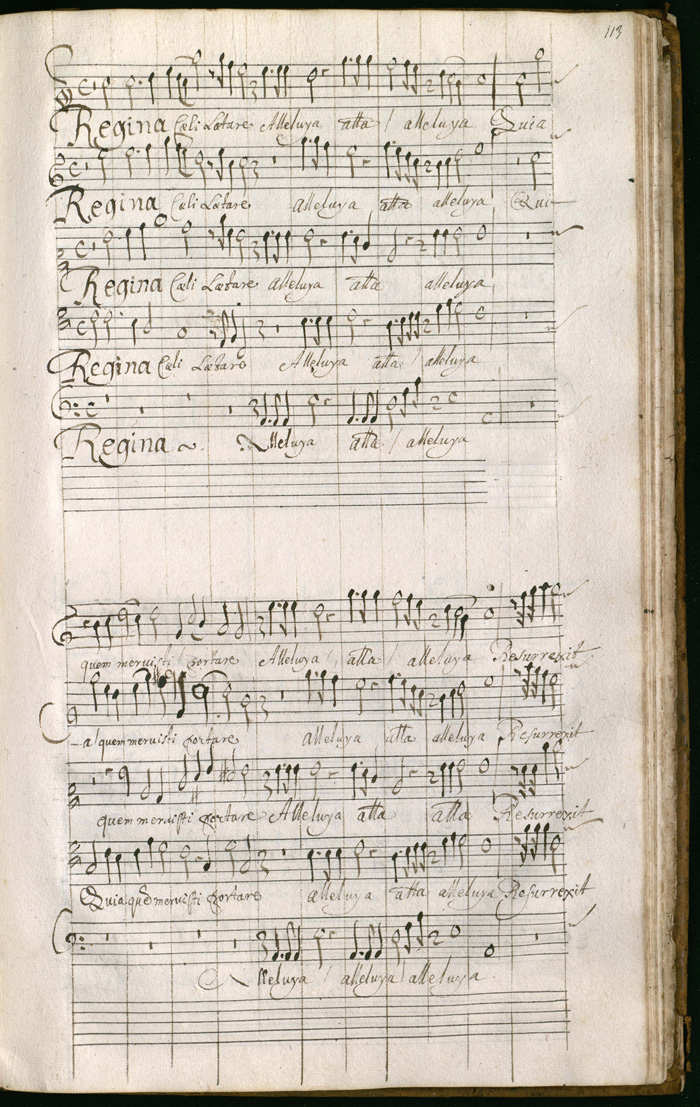 113
Regina Cæli Lætare Alleluya alla / alleluya Quia
Regina Cæli Lætare alleluya alla alleluya Qui
Regina Cæli Lætare alleluya alla alleluya
Regina Cæli Lætare Alleluya alla / alleluya
Regina ~ Alleluya alla / alleluya
quem meruisti / portare Alleluya / alla / alleluya Resurrexit
-a quem meruisti portare alleluya alla alleluya Resurrexit
quem meruisti portare Alleluya alla alla Resurrexit
Quia quē meruisti portare alleluya alla alleluya Resurrexit
Alleluya / alleluya / alleluya